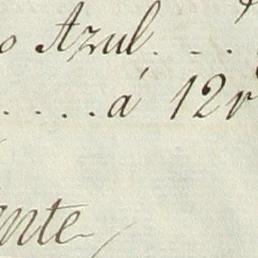 o Azul. . .
. . . . . á 12r
nte